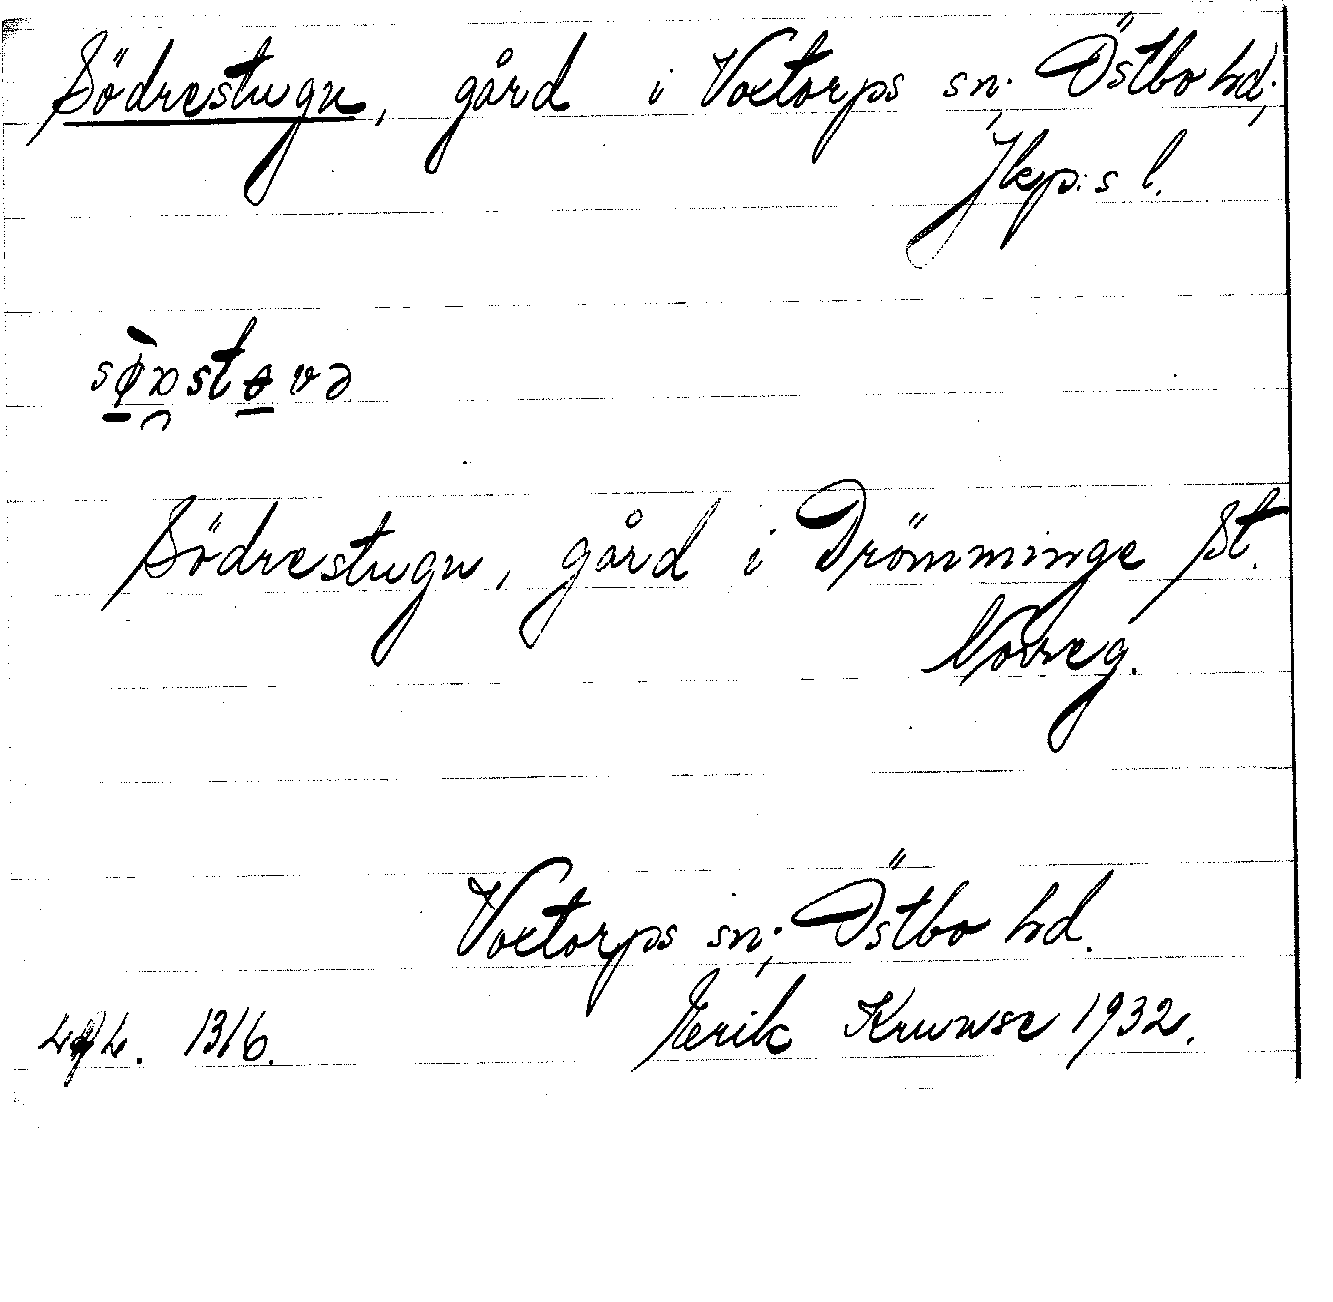 Södrestugu, gård i Voxtorps sn; Östbo hd;
Jkp:s l.
Södrestugu, gård i Drömminge st.
Norreg.
Voxtorps sn; Östbo hd.
1316. Erik Kruuse 1932.